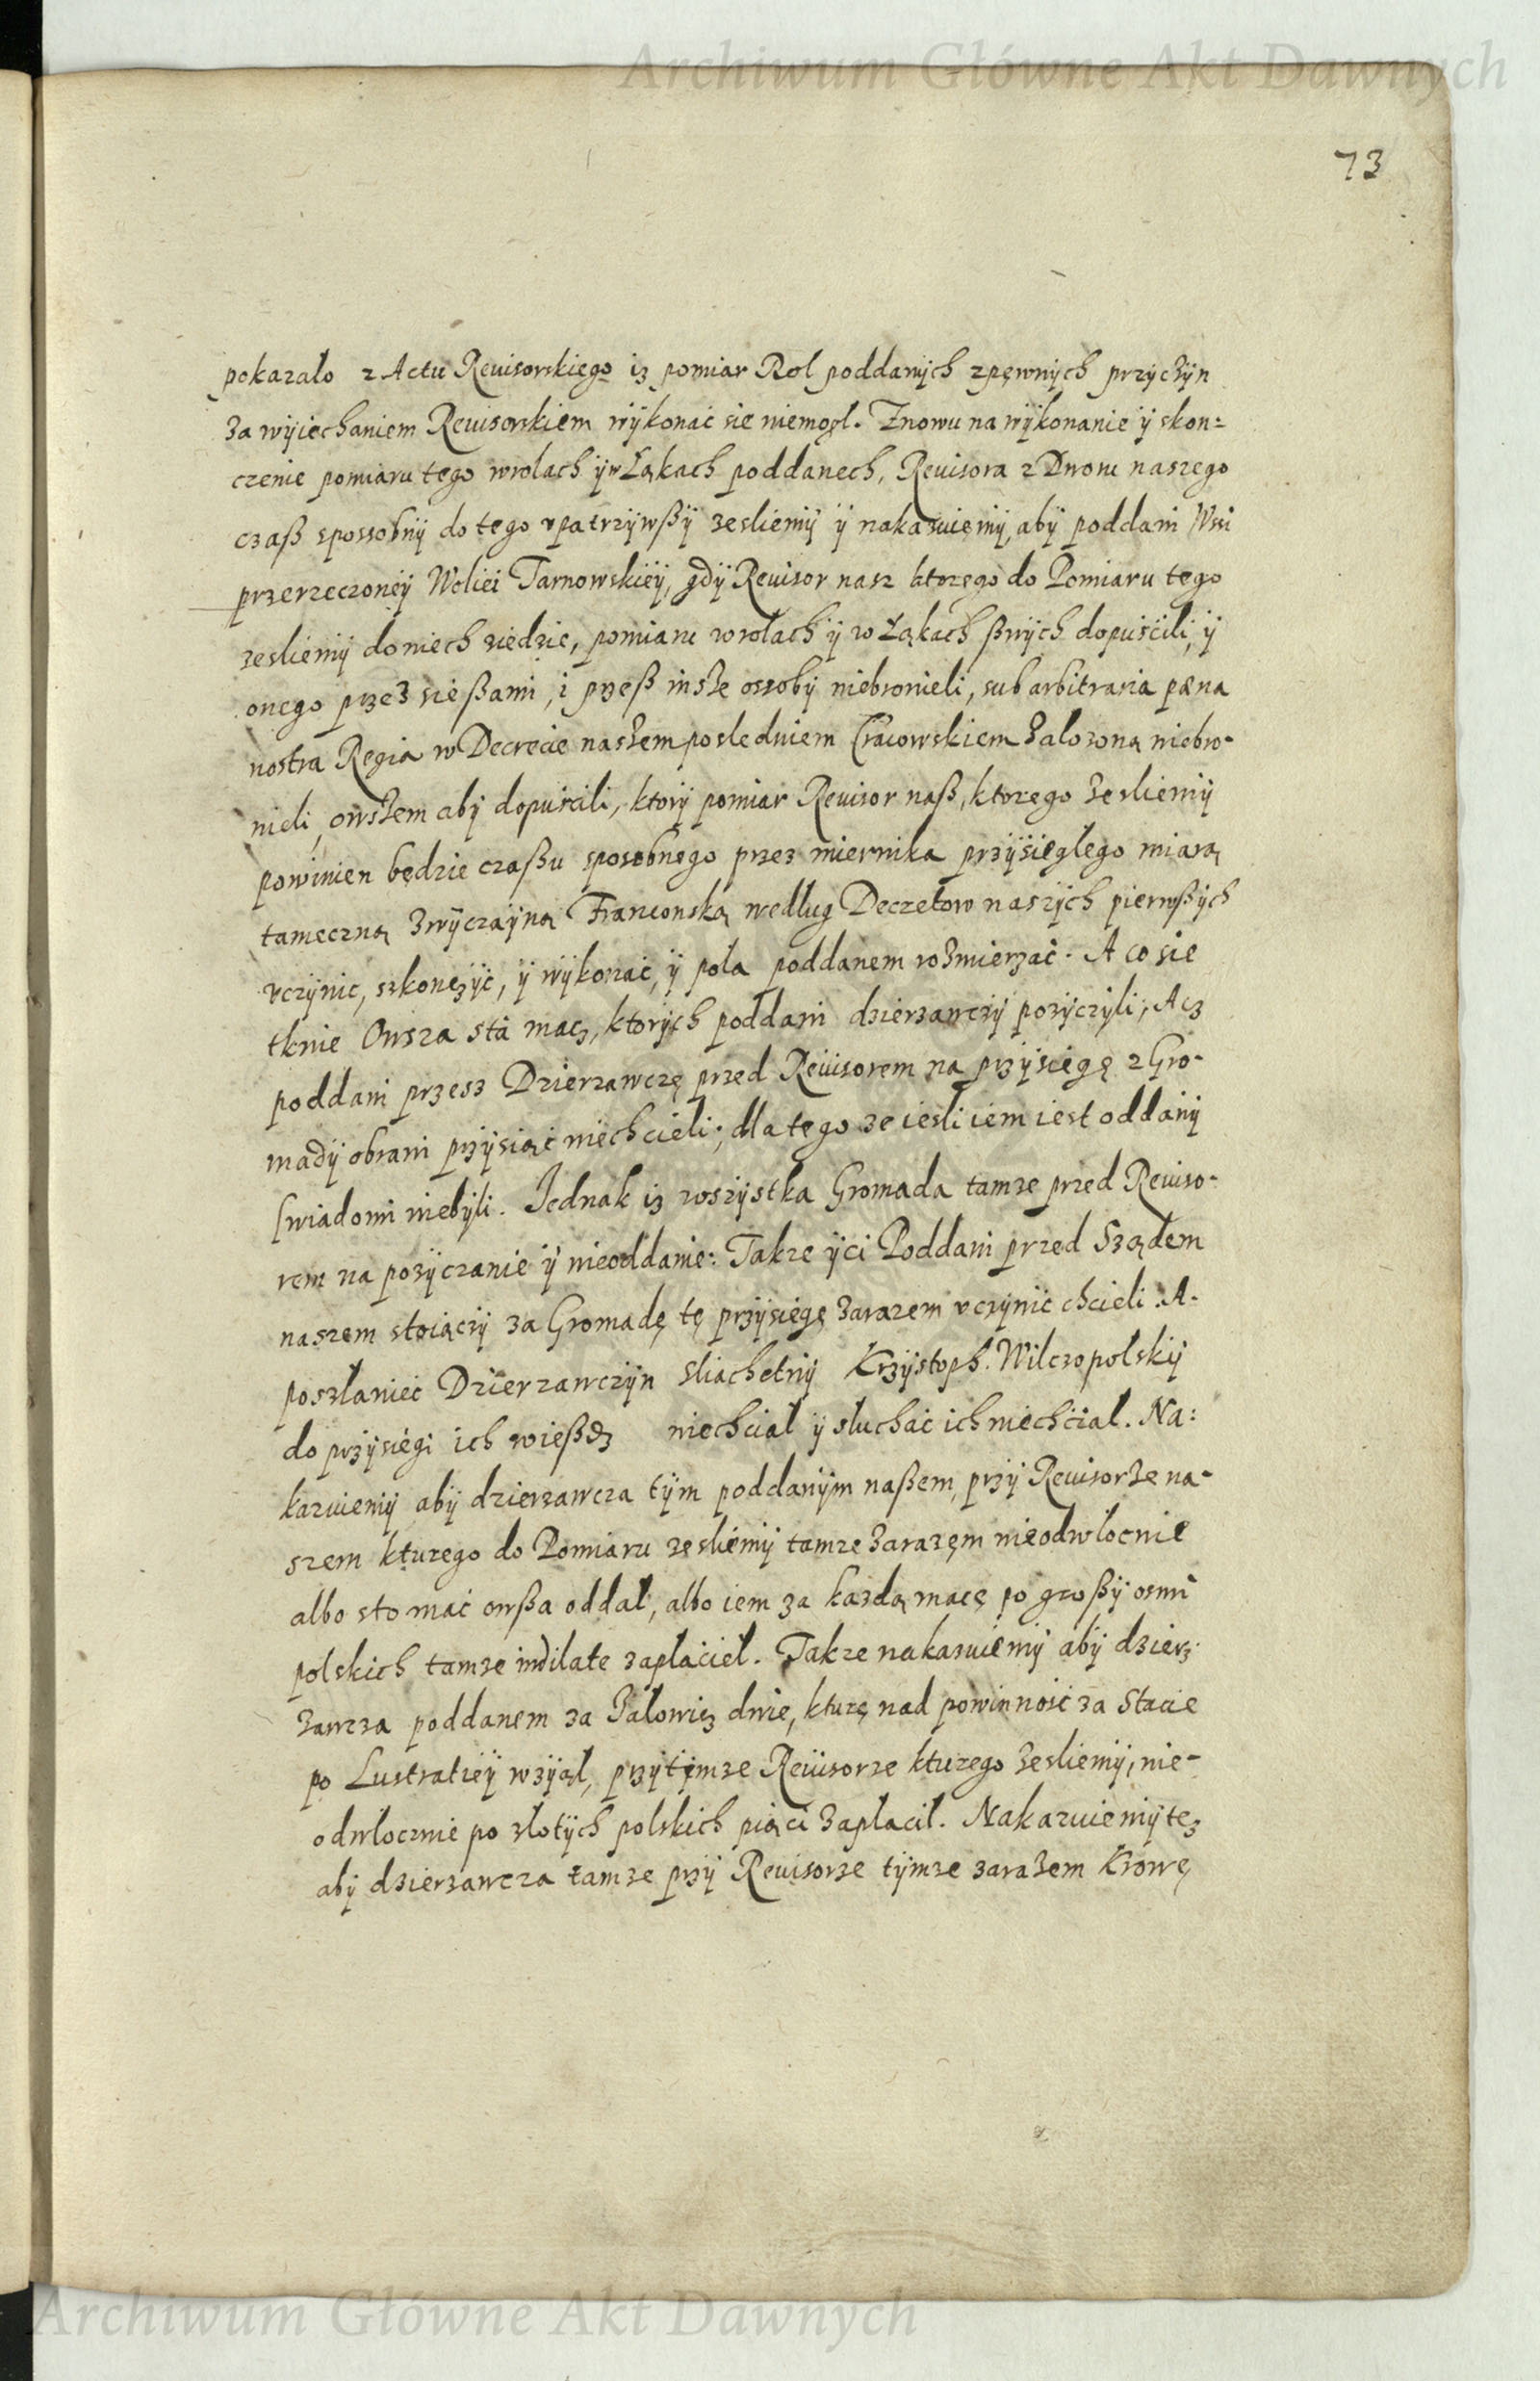 Archiwum Główne Akt Dawnych
73
pokazało z Actu Reuisorskiego iz pomiar Rol poddanÿch zpewnÿch przÿchÿn
za wÿiechaniem Reuisorskiem wÿkonac sie niemogł. Znowu na wÿkonanie ÿ skon=
czenie pomiaru tego wrolach ÿ w Łąkach poddanech, Reuisora z Dworu naszego
czaß spossobnÿ do tego vpatrzÿwßÿ zesliemÿ ÿ nakazuiemÿ, abÿ poddani Wsi
przerzeczoneÿ Woliei Tarnowskieÿ, gdÿ Reuisor nasz ktorego do Pomiaru tego
zesliemÿ do niech ziedzie, pomiaru w rolach ÿ w Łąkach ßwÿch dopuscili, ÿ
onego przez sie ßami, i przeß insze ossobÿ niebronieli, sub arbitraria pæna
nostra Regia w Decrecie naszem posledniem Cracowskiem załozoną niebro-
nieli, owszem abÿ dopuscili, ktorÿ pomiar Reuisor naß, ktorego zesliemÿ
powinien będzie czaßu sposobnego przez miernika przÿsięgłego miarą
tameczną zwÿczaÿną Franconską według Decretow naszÿch pierwßÿch
vczÿnic, szkonczÿc, ÿ wÿkonac, ÿ pola poddanem rozmierzac. A co sie
tknie Owsza sta mac, ktorÿch poddani dzierzawczÿ pozÿczÿli, Acz
poddani przesz Dzierzawczę przed Reuisorem na przÿsięgę z Gro-
madÿ obrani przÿsiąc niechcieli; dla tego ze iesli iem iest oddanÿ
swiadomi niebÿli. Jednak iz wszÿstka Gromada tamze przed Reuiso-
rem na pozÿczanie ÿ nieoddanie: Takze ÿ ci Poddani przed Sządem
naszem stoiączÿ za Gromadę tę przÿsięgę zarazem vczÿnic chcieli. A-
poszłaniec Dzierzawczÿn Sliachetnÿ Krzÿstoph. Wilczopolskÿ
do przÿsięgi ich niechciał ÿ słuchac ich niechciał. Na:
kazuiemÿ abÿ dzierzawcza tÿm poddanÿm naßem, przÿ Reuisorze na-
szem kturego do Pomiaru zesliemÿ tamze zarazem nieodwłocnie
albo sto mac owßa oddał, albo iem za kazdą macę po großÿ osmi
polskich tamze indilate zapłacieł. Takze nakazuiemÿ abÿ dzierz-
zawcza poddanem za Jałowicz dwie, kturę nad powinnosc za Stacie
po Lustratieÿ wzÿął, przÿ tÿmze Reuisorze kturego zesliemÿ, nie-
odwłocznie po złotÿch polskich piąci zapłacił. Nakazuiemÿ tez
abÿ dzierzawcza tamze przÿ Reuisorze tÿmze zarazem Krowę
Archiwum Główne Akt Dawnych